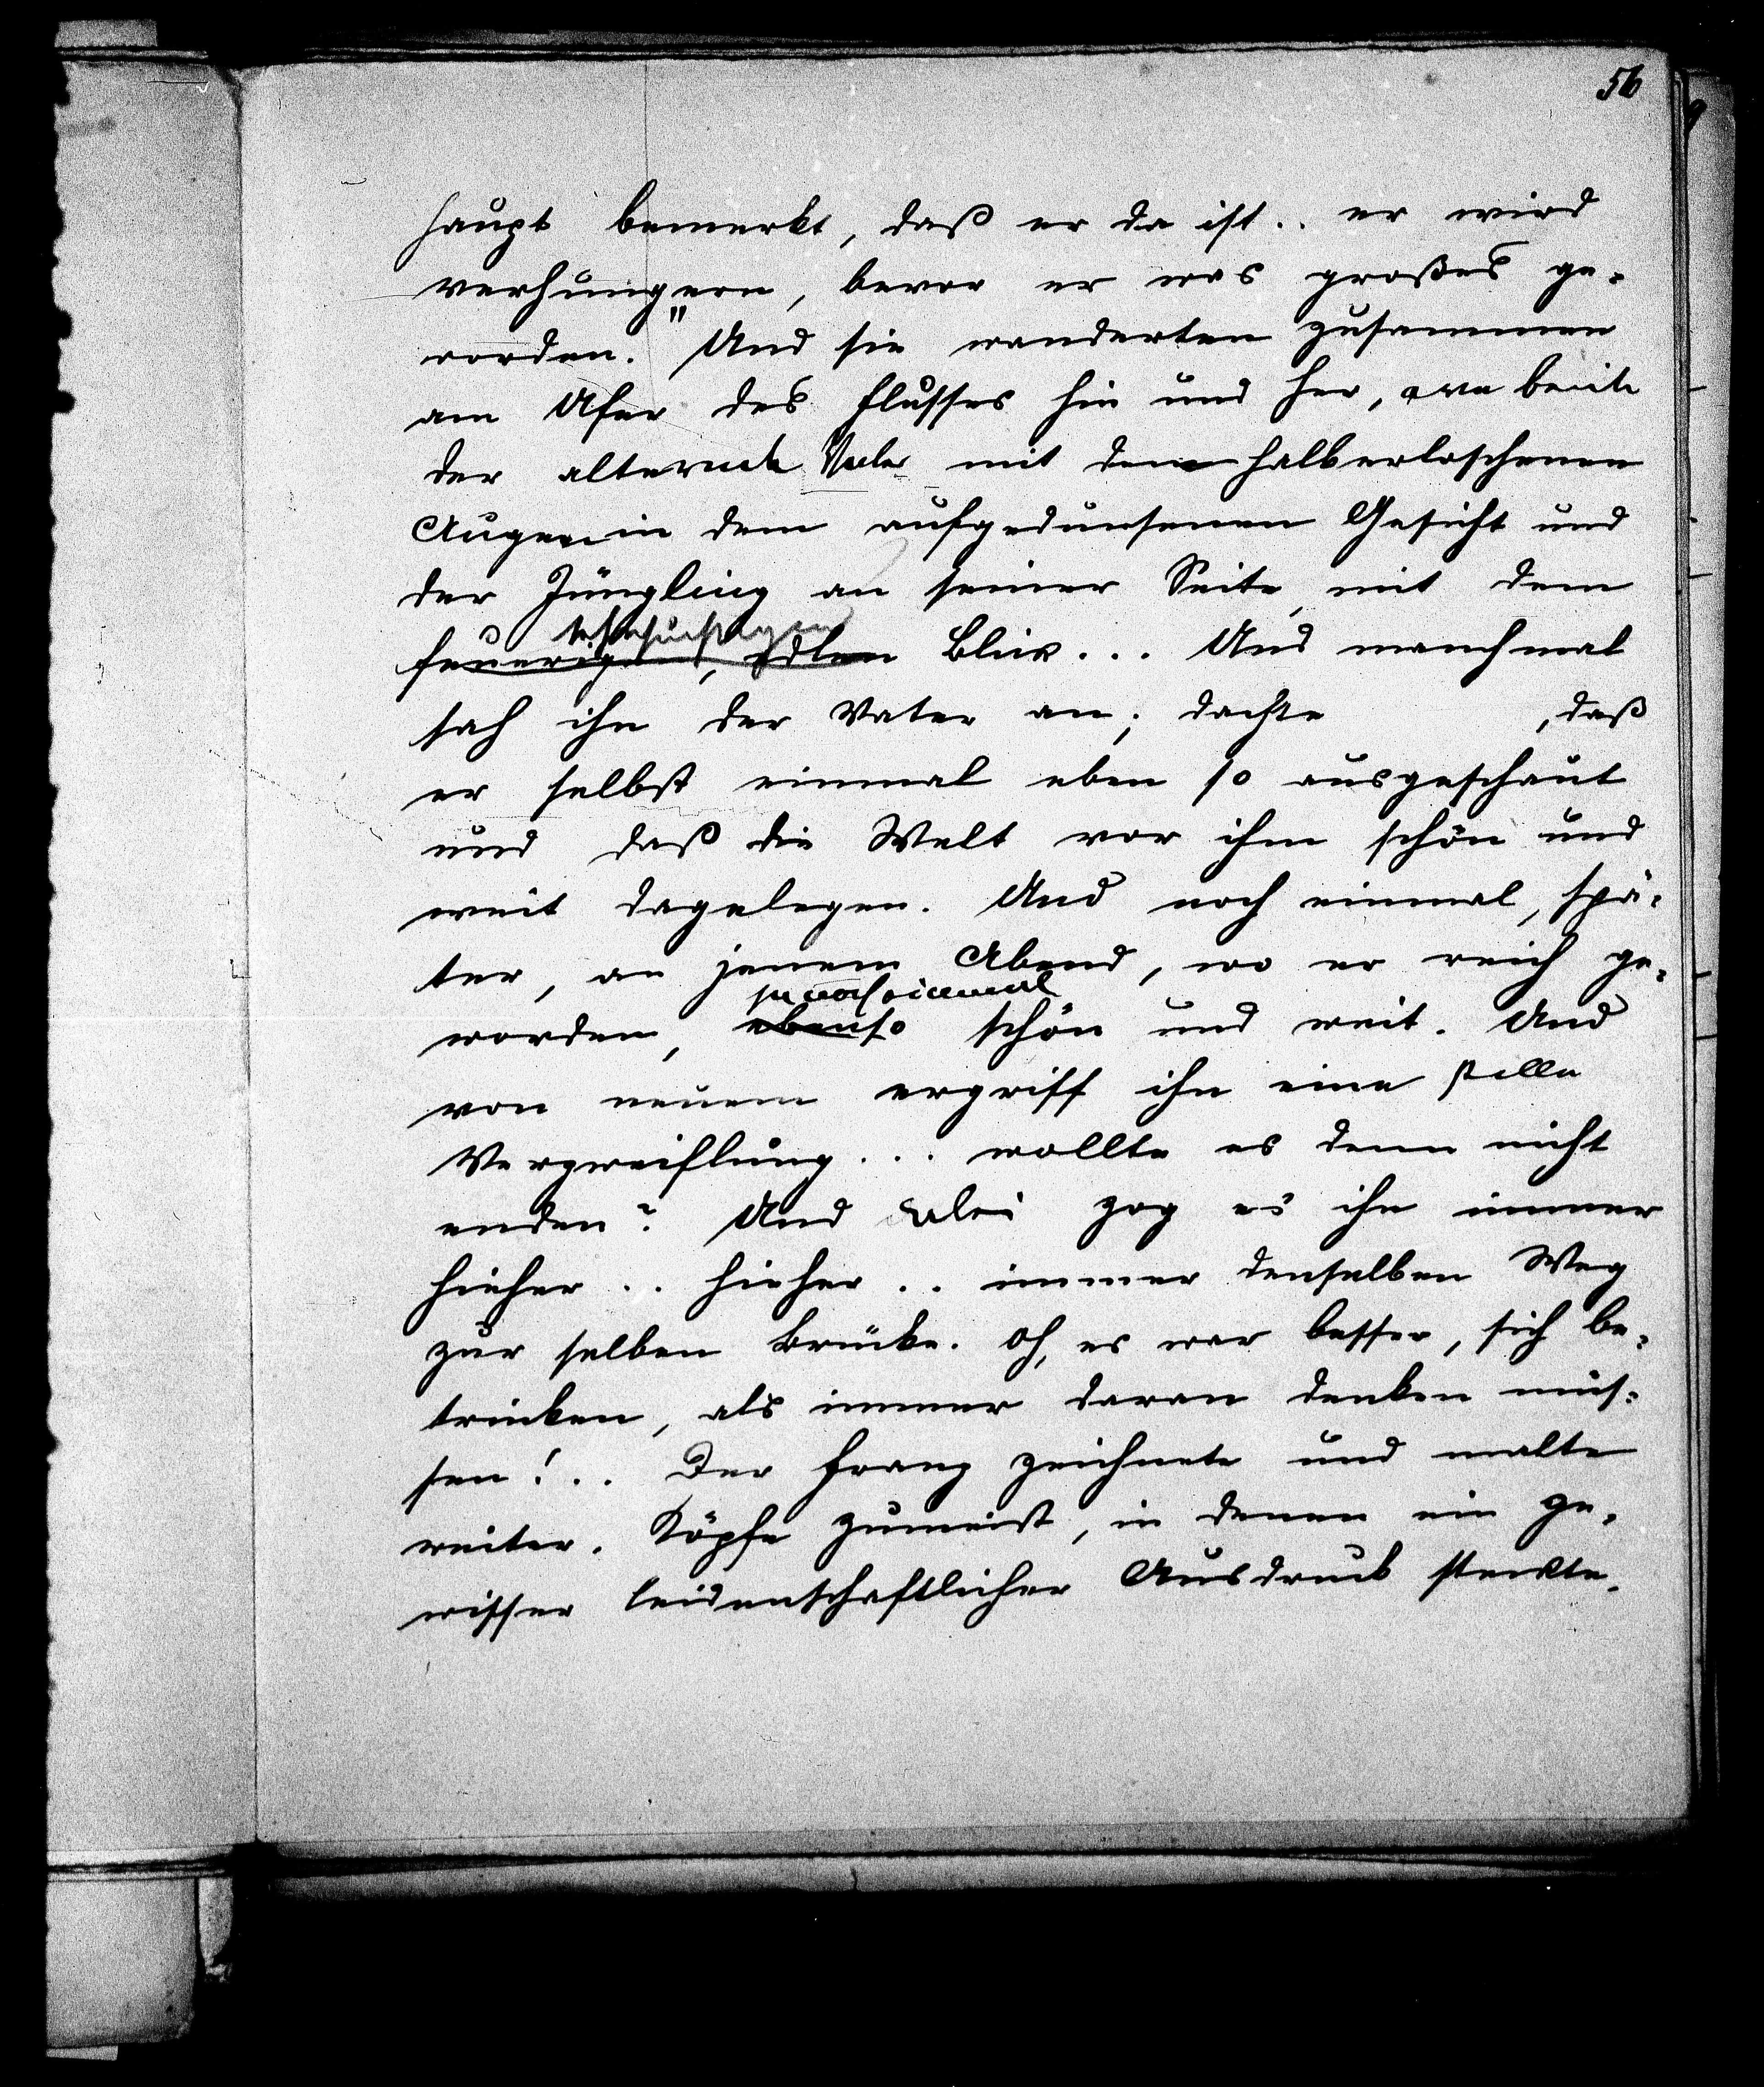 56
haupt bemerkt, daß er da ist.. er wird
verhungern, bevor er was großes ge-
worden." Und sie wanderten zusammen
am Ufer des Flusses hin und her,
der alternde mit den halberloschenen
Augen in dem aufgedunsenen Gesicht und
der Jüngling an seiner Seite, mit dem
sehnsüchtigen
feuerigen, edlen Blick... Und manchmal
sah ihn der Vater an; dachte , daß
er selbst einmal eben so ausgeschaut
und daß die Welt vor ihm schön und
weit dagelegen. Und noch einmal, spä-
ter, an jenem Abend, wo er reich ge-
noch einmal
worden, ebenso schön und weit. Und
von neuem ergriff ihn eine stille
Verzweiflung... wollte es denn nicht
enden? Und zog es ihn immer
hieher.. hieher.. immer denselben Weg
zur selben Brücke. Oh, es war besser, sich be-
trinken, als immer daran denken müs-
sen!.. Der Franz zeichnete und malte
weiter. Köpfe zumeist, in denen ein ge-
wisser leidenschaftlicher Ausdruck steckte.